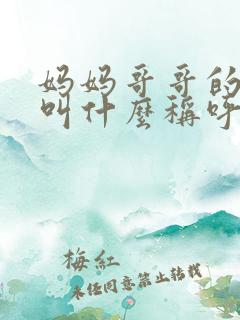 妈妈哥哥的
叫什麼稱呼
梅紅
未经同意禁止转载